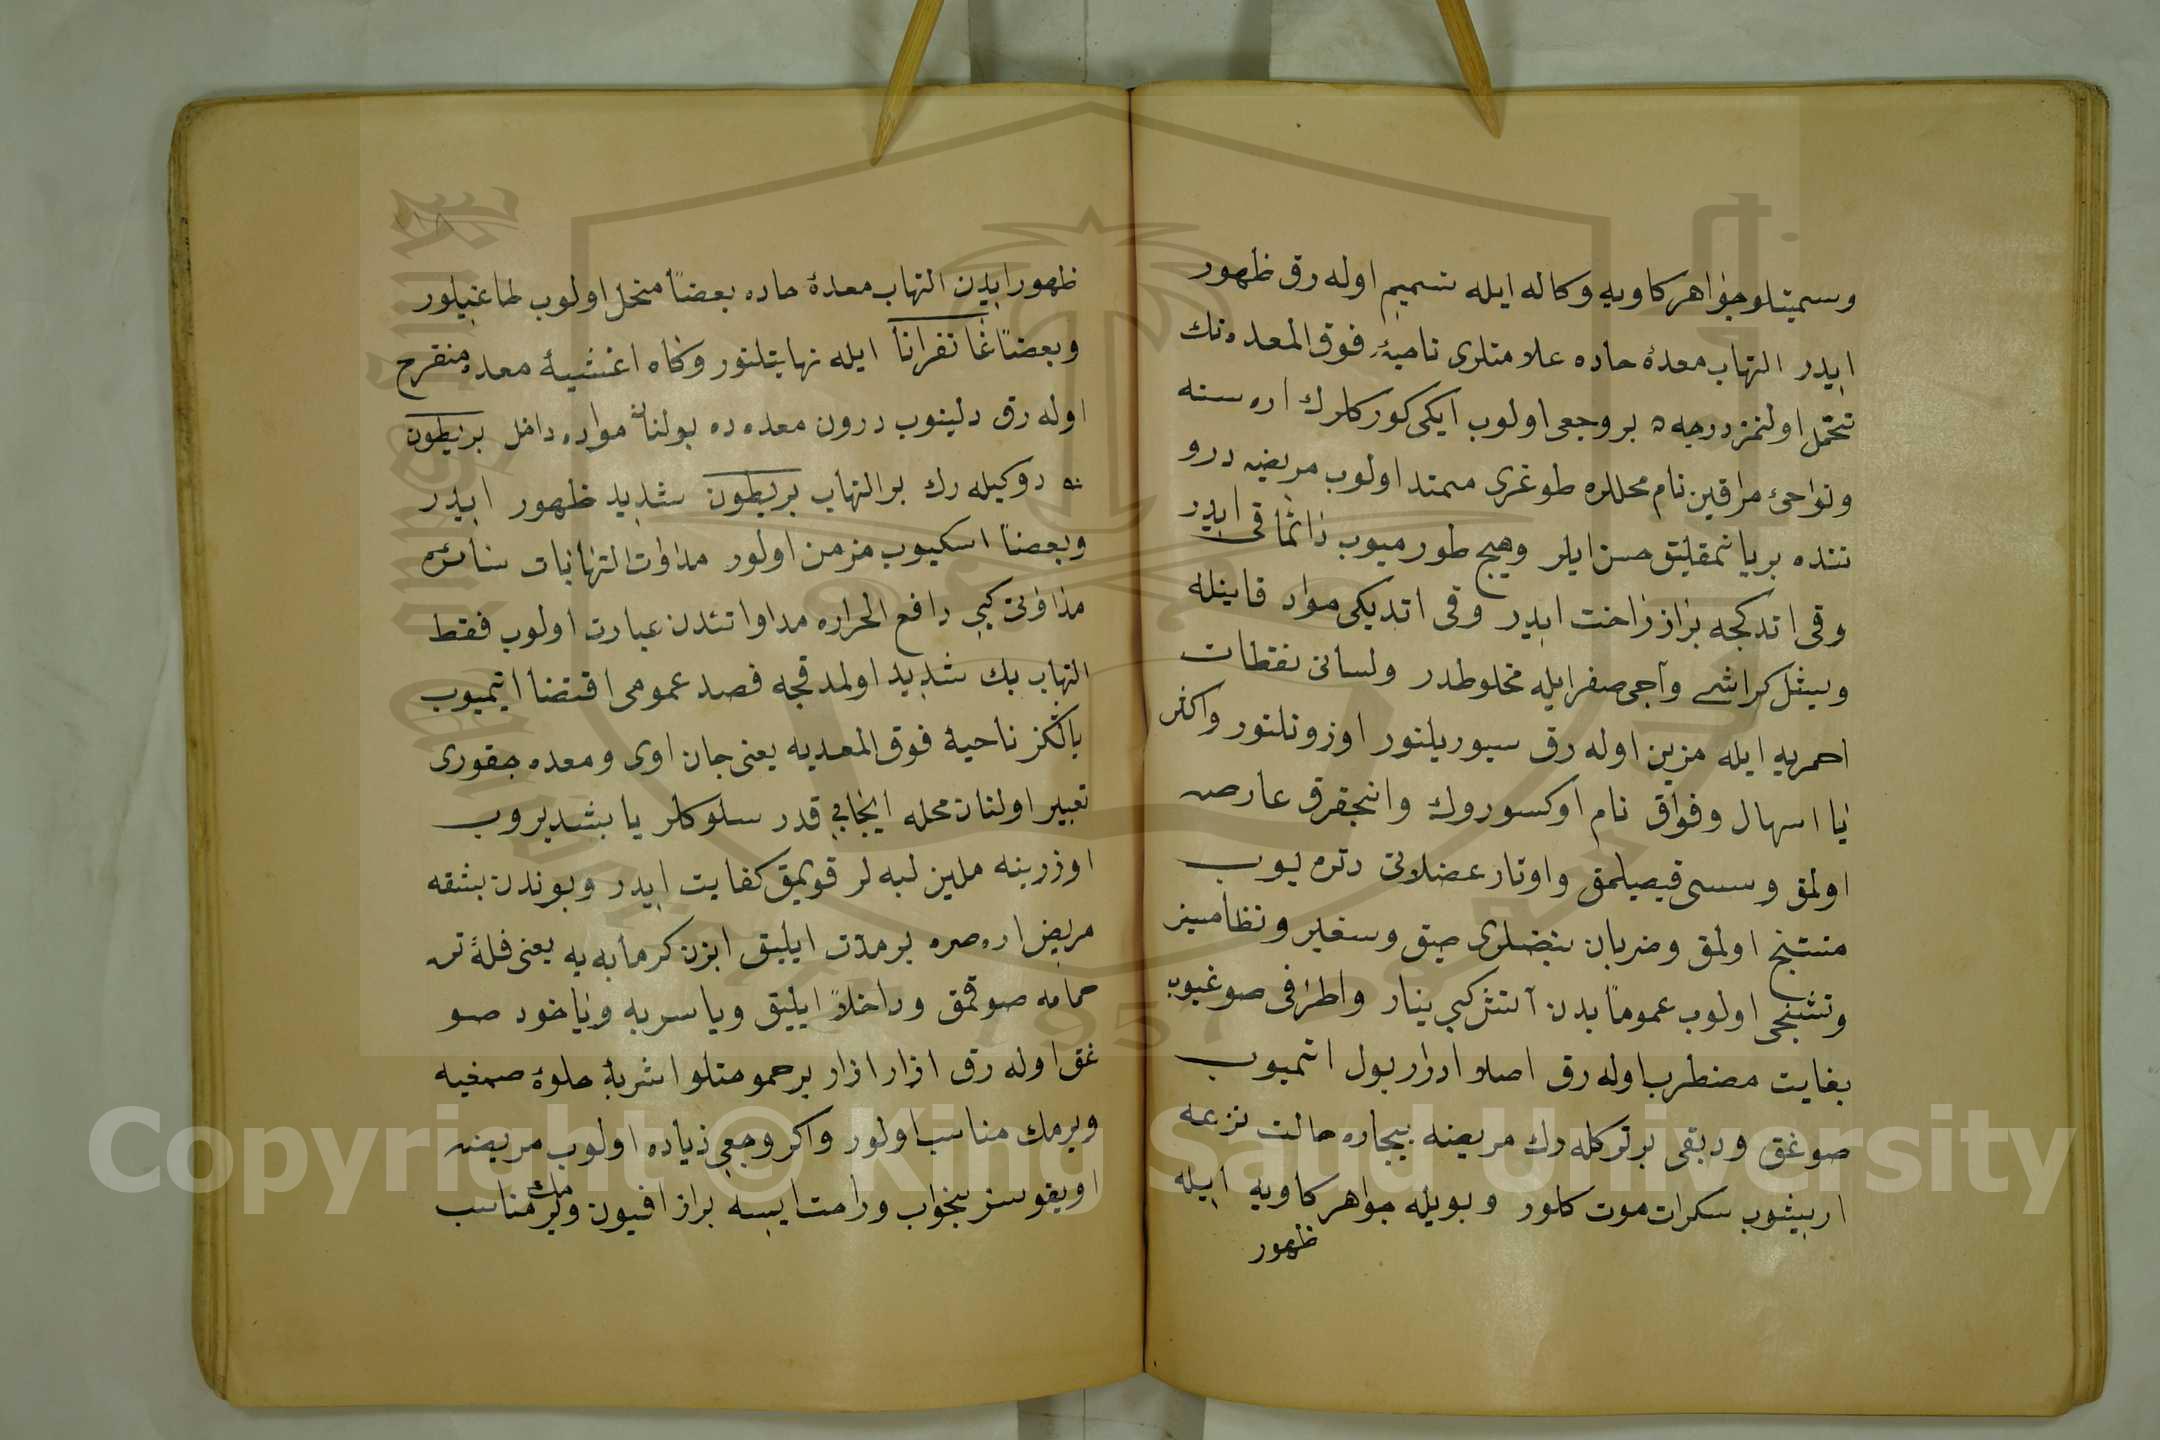 وسمیتلو جواهر كاویه وكاله ایله تسمیم اوله رق ظهور
ایدر التهاب معدۀ حاده علامتلری ناحیۀ فوق المعده نك
تحمل اولنمز درجه ده بر وجعی اولوب ایكی كوركلرك اره سنه
ونواحئ مراقین نام محللره طوغری ممتد اولوب مریضه درو
ننده بر یانمقلیق حس ایلر وهیچ طورمیوب دائما قی ایدر
وقی اتدكجه براز راحت ایدر وقی اتدیكی مواد قاینله
ویشل كراشے وآجی صفرا یله مخلوطدر ولسانی نقطات
احمریه ایله مزین اوله رق سیوریلنور اوزونلنور واكثر
یا اسهال وفواق نام اوكسوروك وانجقرق عارض
اولمق وسسی قیصیلمق واوتار عضلاتی دتره یوب
متشنج اولمق وضربان نبضلری صیق وسغیر ونظامسز
وتشنجی اولوب عموماً بدن آتش كبی ینار واطرافی صوغیوب
بغایت مضطرب اوله رق اصلا ادرار بول اتمیوب
صوغق ودبقی بر تر كله رك مریضه بیچاره حالت نزعه
اریشوب سكرات موت كلور وبویله جواهر كاویه ایله
ظهور
١١٨
ظهور ایدن التهاب معدۀ حاده بعضاً منحل اولوب طاغیلور
وبعضاً غانغرانا ایله نهایتلنور وكاه اغشیۀ معده متقرح
اوله رق دلینوب درون معده ده بولنان مواده داخل بریطون
نه دوكیله رك بر التهاب بریطون شدید ظهور ایدر
وبعضاً اسكیوب مزمن اولور مداوات التهابات سائره
مداواتی كبی دافع الحراره مداواتندن عبارت اولوب فقط
التهاب پك شدید اولمدقجه فصد عمومی اقتضا ایتمیوب
یالكز ناحیۀ فوق المعدیه یعنی جان اوی ومعده چقوری
تعبیر اولنان محله ایجابی قدر سلوكلر یاپشدیروب
اوزرینه ملین لبه لر قویمق كفایت ایدر وبوندن بشقه
مریض اره صره بر مدت ایلیق ابزن كرمابه یه یعنی فله تر
حمامه صوقمق وداخلاً ایلیق ویا سربه ویاخود صو
غق اوله رق ازار ازار بر حموضتلو اشربۀ حلوۀ صمغیه
ویرمك مناسب اولور واكر وجعی زیاده اولوب مریضه
اویقوسز بیخواب وراحت ایسه براز افیون ویرمك مناسب